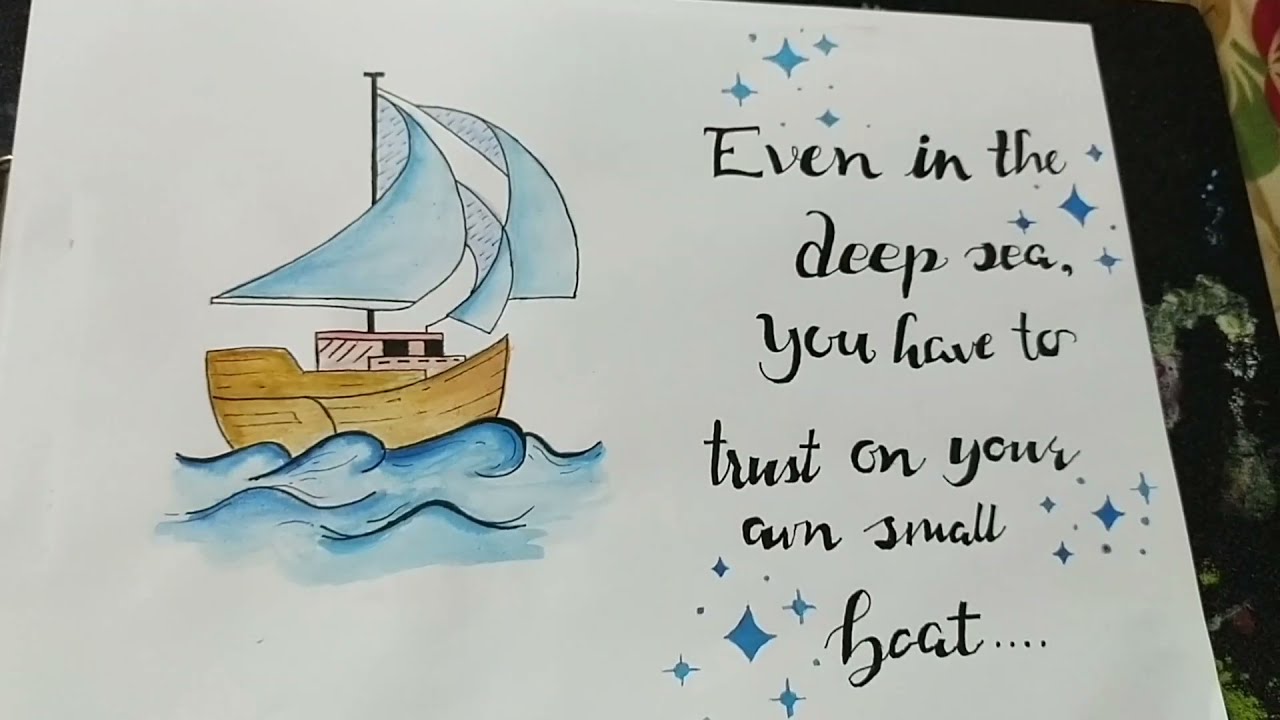 Even in the
deep sea,
you have to
trust on your
own small
boat....